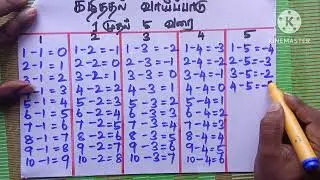 கழித்தல் வாய்ப்பாடு
1 முதல் 5 வரை
KINEMASTER
2 3 4 5
1-1=0 1-2=-1 1-3=-2 1-4=-3 1-5=-4
2-1=1 2-2=0 2-3=-1 2-4=-2 2-5=-3
3-1=2 3-2=1 3-3=0 3-4=-1 3-5=-2
4-1=3 4-2=2 4-3=1 4-4=0 4-5=-
5-1=4 5-2=3 5-3=2 5-4=1
6-1=5 6-2=4 6-3=3 6-4=2
7-1=6 7-2=5 7-3=4 7-4=3
8-1=7 8-2=6 8-3=5 8-4=4
9-1=8 9-2=7 9-3=6 9-4=5
10-1=9 10-2=8 10-3=7 10-4=6